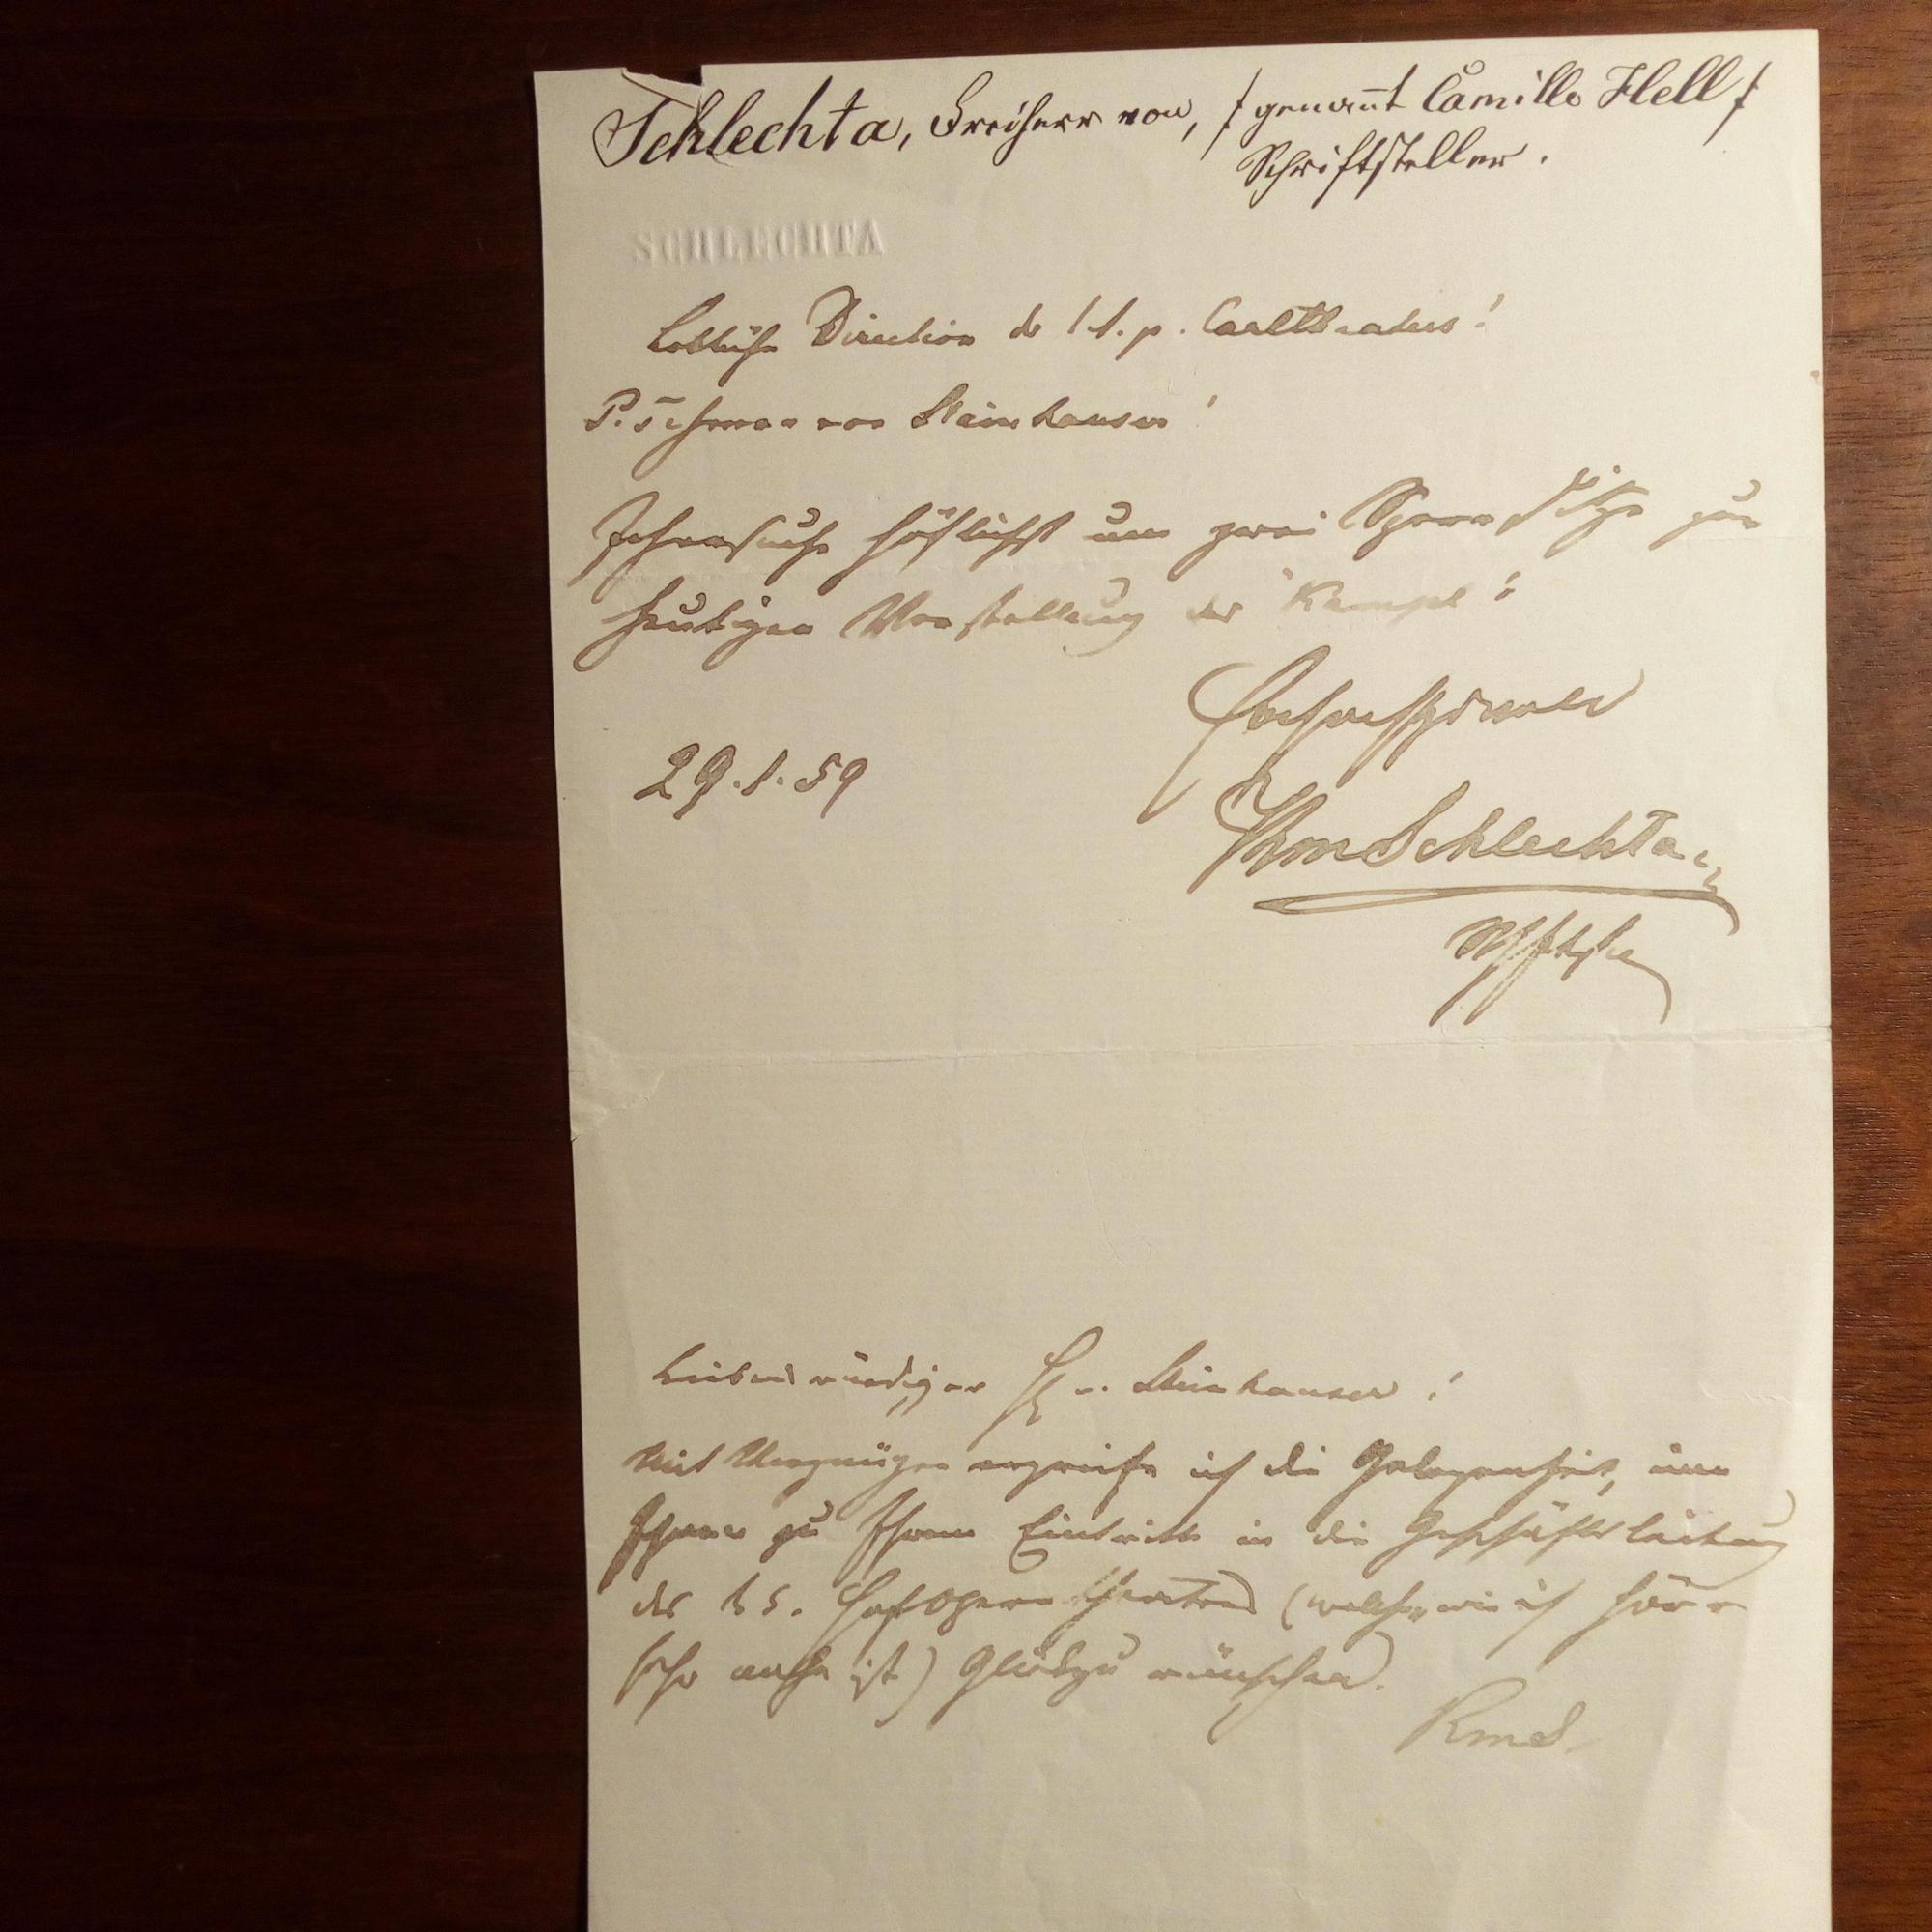 Schlechta, Freiherr von, / genannt Camillo Hell /
Schriftsteller.
SCHLECHTA
Löbliche Direction des Carltheaters!
P. T. Herrn von Steinhauser!
Ich ersuche höflichst um zwei Sperrsitze zur
heutigen Vorstellung des "Kampl":
Hochachtungsvoll
29.1.59
Schlechta
Liebenswürdiger H v. Steinhauser!
Mit Vergnügen ergreife ich die Gelegenheit, um
Ihnen zu Ihrem Eintritte in die Geschäftsleitung
des Hofoperntheaters (welches, wie ich höre
sehr nahe ist) Glück zu wünschen.